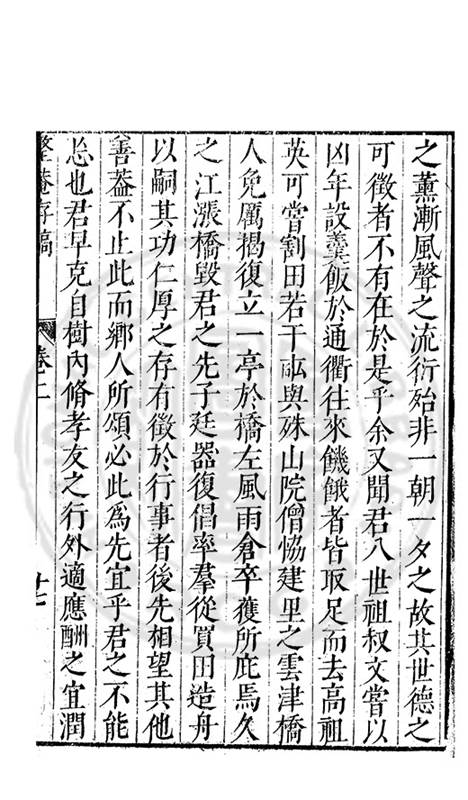 之薰漸風聲之流衍殆非一朝一夕之故其世德之
可徵者不有在於是乎余又聞君八世祖叔文嘗以
凶年設羹飯於通衢往來饑餓者皆取足而去高祖
英可嘗割田若干畝與殊山院僧恊建里之雲津橋
人免厲揭復立一亭於橋左風雨倉卒獲所庇焉久
之江漲橋毀君之先子廷器復倡率羣從買田造舟
以嗣其功仁厚之存有徵於行事者後先相望其他
善葢不止此而鄉人所頌必此為先宜乎君之不能
忘也君早克自樹內脩孝友之行外適應酬之宜潤
整菴存稿
卷十二
十七